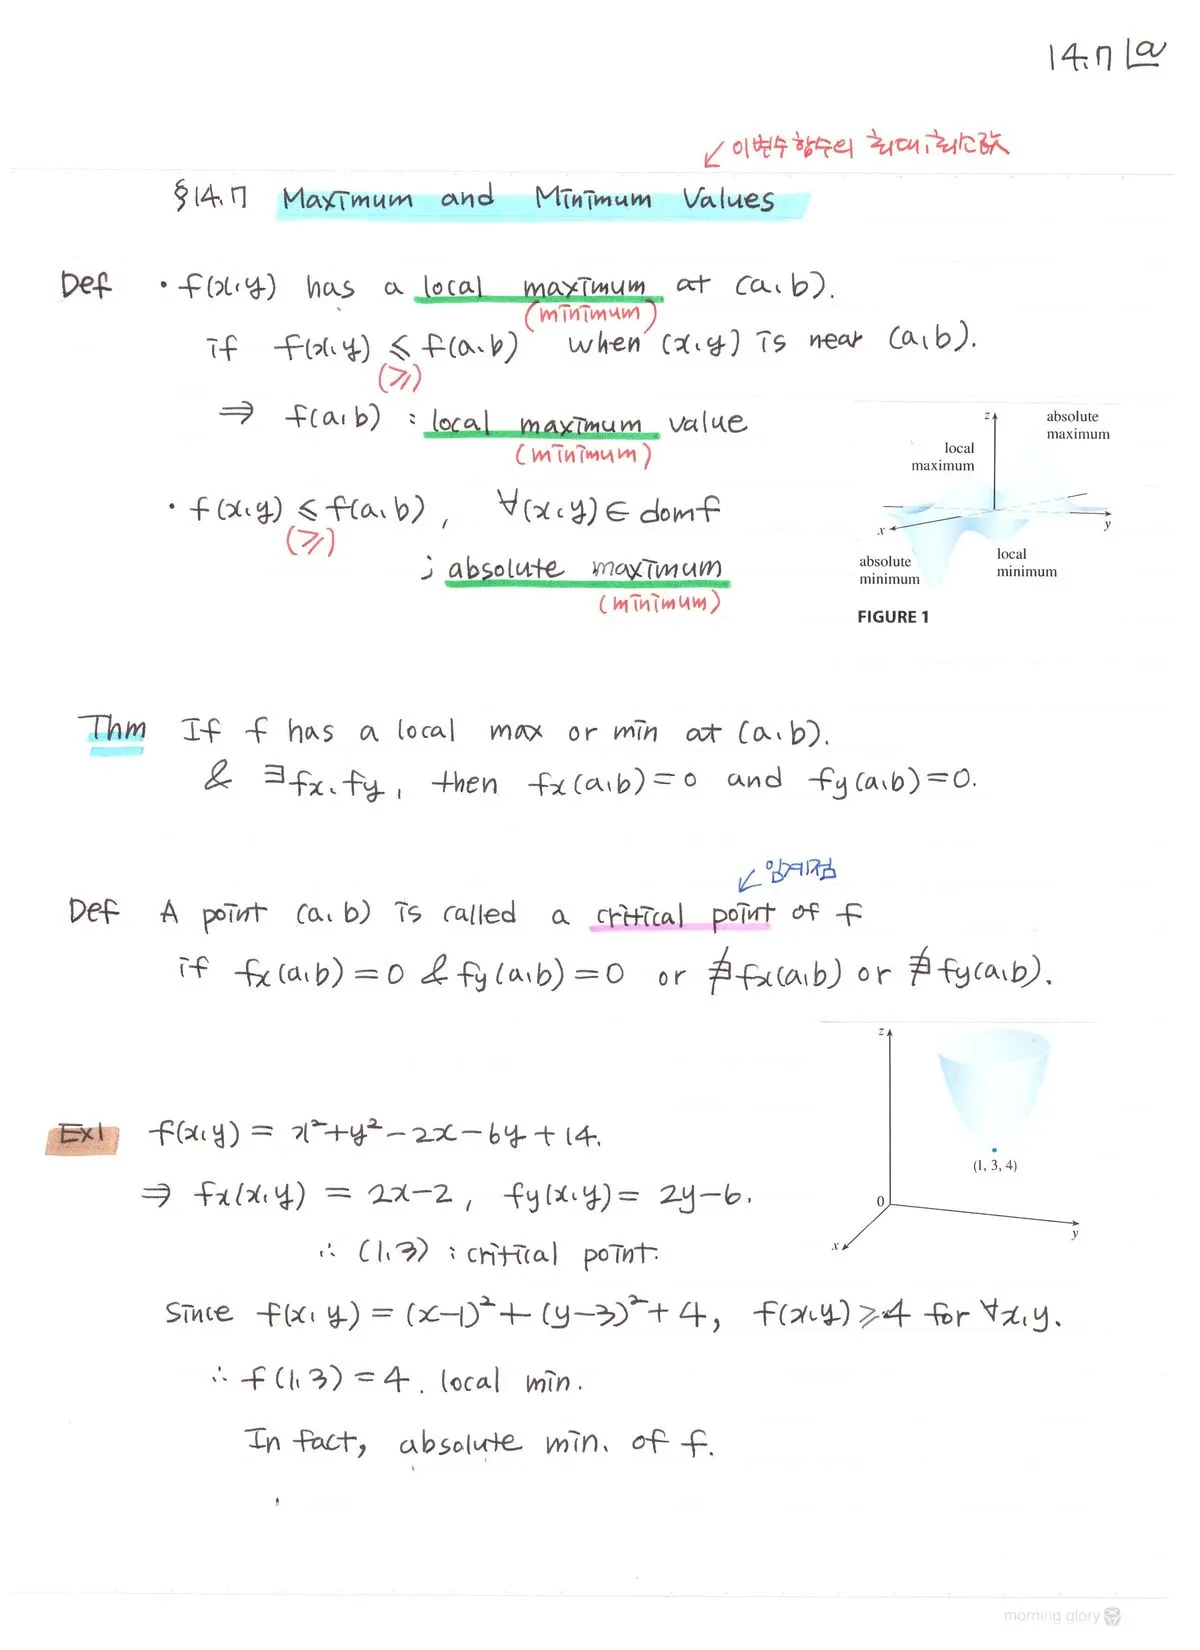 14.7 @
↙ 이변수함수의 최대,최소값
§14.7 Maximum and Minimum Values
Def • f(x,y) has a local maximum at (a,b).
(minimum)
if f(x,y) ≤ f(a,b) when (x,y) is near (a,b).
(≥)
⇒ f(a,b) : local maximum value
(minimum)
• f(x,y) ≤ f(a,b), ∀(x,y) ∈ domf
(≥)
; absolute maximum
(minimum)
z
absolute
maximum
local
maximum
x
y
absolute
minimum
local
minimum
FIGURE 1
Thm If f has a local max or min at (a,b).
& ∃fx, fy, then fx(a,b)=0 and fy(a,b)=0.
↙ 임계점
Def A point (a,b) is called a critical point of f
if fx(a,b)=0 & fy(a,b)=0 or ∄fx(a,b) or ∄fy(a,b).
z
(1, 3, 4)
0
x
y
Ex1 f(x,y) = x²+y²-2x-6y+14.
⇒ fx(x,y) = 2x-2, fy(x,y) = 2y-6.
∴ (1,3) : critical point.
Since f(x,y) = (x-1)²+(y-3)²+4, f(x,y) ≥ 4 for ∀x,y.
∴ f(1,3) = 4. local min.
In fact, absolute min. of f.
morning glory